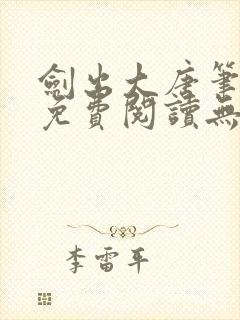 劍出大唐筆
免費閱讀無
李雷平